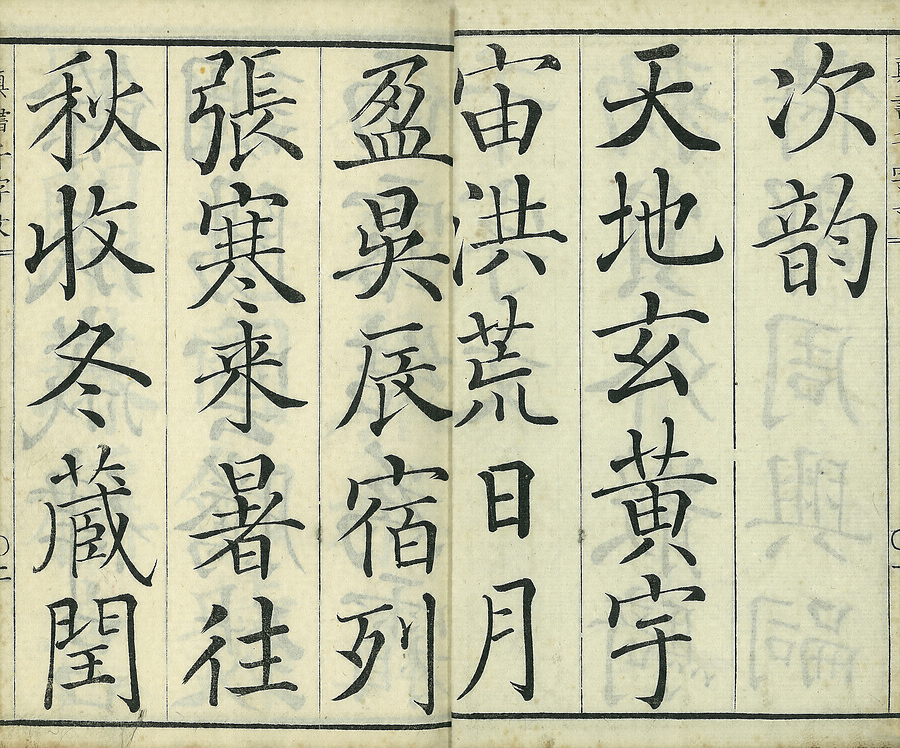 次韵
天地玄黄宇
宙洪荒日月
盈昃辰宿列
張寒来暑往
秋收冬蔵閏